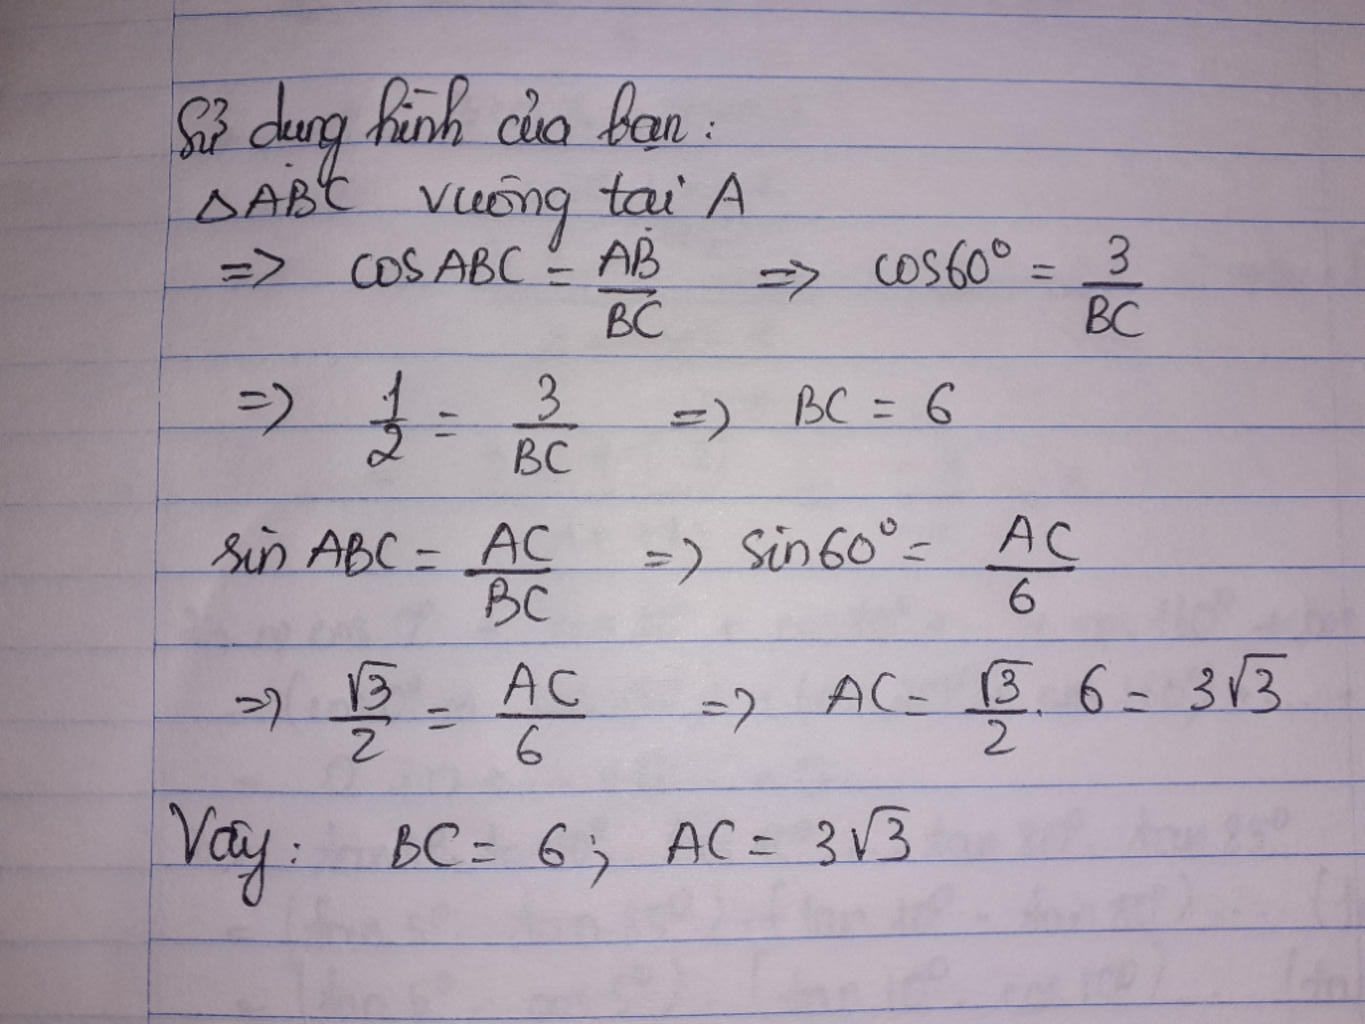 Sử dụng hình của bạn:
△ABC vuông tại A
=> cos ABC = AB/BC => cos60° = 3/BC
=> 1/2 = 3/BC => BC = 6
sin ABC = AC/BC => sin60° = AC/6
=> √3/2 = AC/6 => AC = √3/2 . 6 = 3√3
Vậy: BC = 6; AC = 3√3